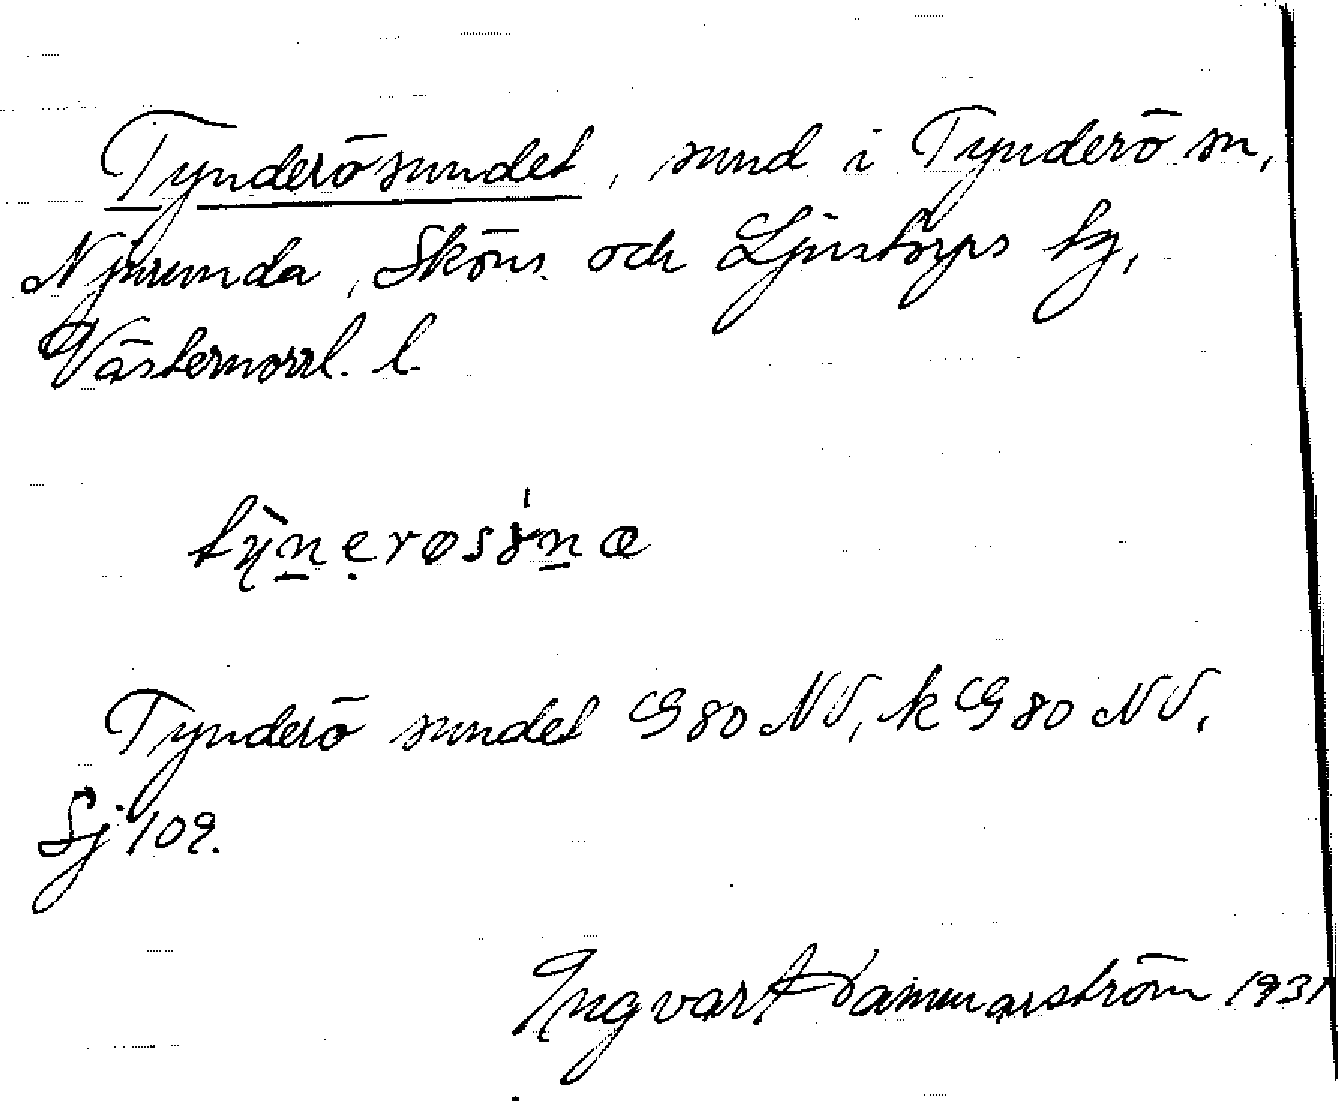 Tynderösundet, sund i Tynderö sn,
Njurunda, Sköns och Ljustorps tg,
Västernorrl. l.
Tynderö sundet G 80 NV, k G 80 NV.
Sj 109.
Ingvar Hammarström 1931